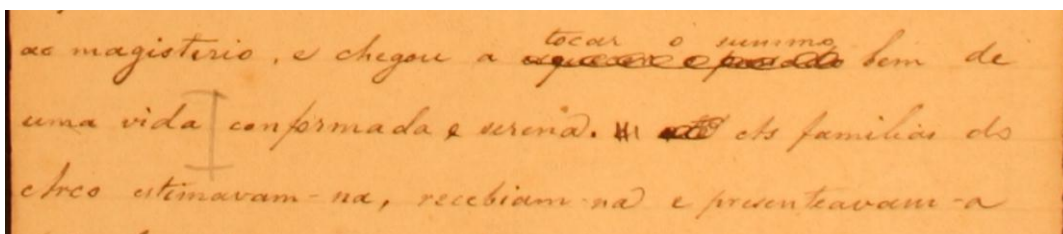 ao magisterio, e chegou a tocar o summo bem de
uma vida conformada e serena. As familias do
Arco estimavam-na, recebiam-na e presenteavam-a